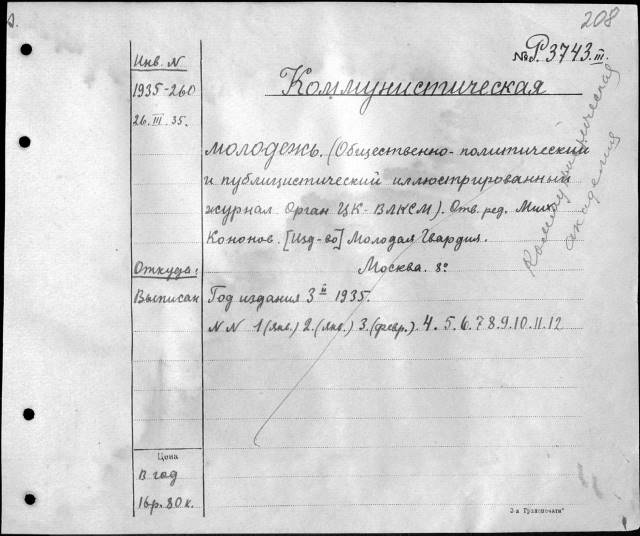 208
№ P3743.III.
Инв. N
1935-260
26.III.35.
Коммунистическая
молодежь. (Общественно-политический
и публицистический иллюстрированный
журнал Орган ЦК-ВЛКСМ). Отв. ред. Мих.
Кононов. [Изд-во] Молодая Гвардия.
Москва. 8°
Коммунистическая
академия
Откуда:
Выписан
Год издания 3й 1935.
N N 1 (янв.) 2. (янв.) 3. (февр.) 4. 5. 6. 7 8. 9. 10. 11. 12
Цена
в год
16р. 80к.